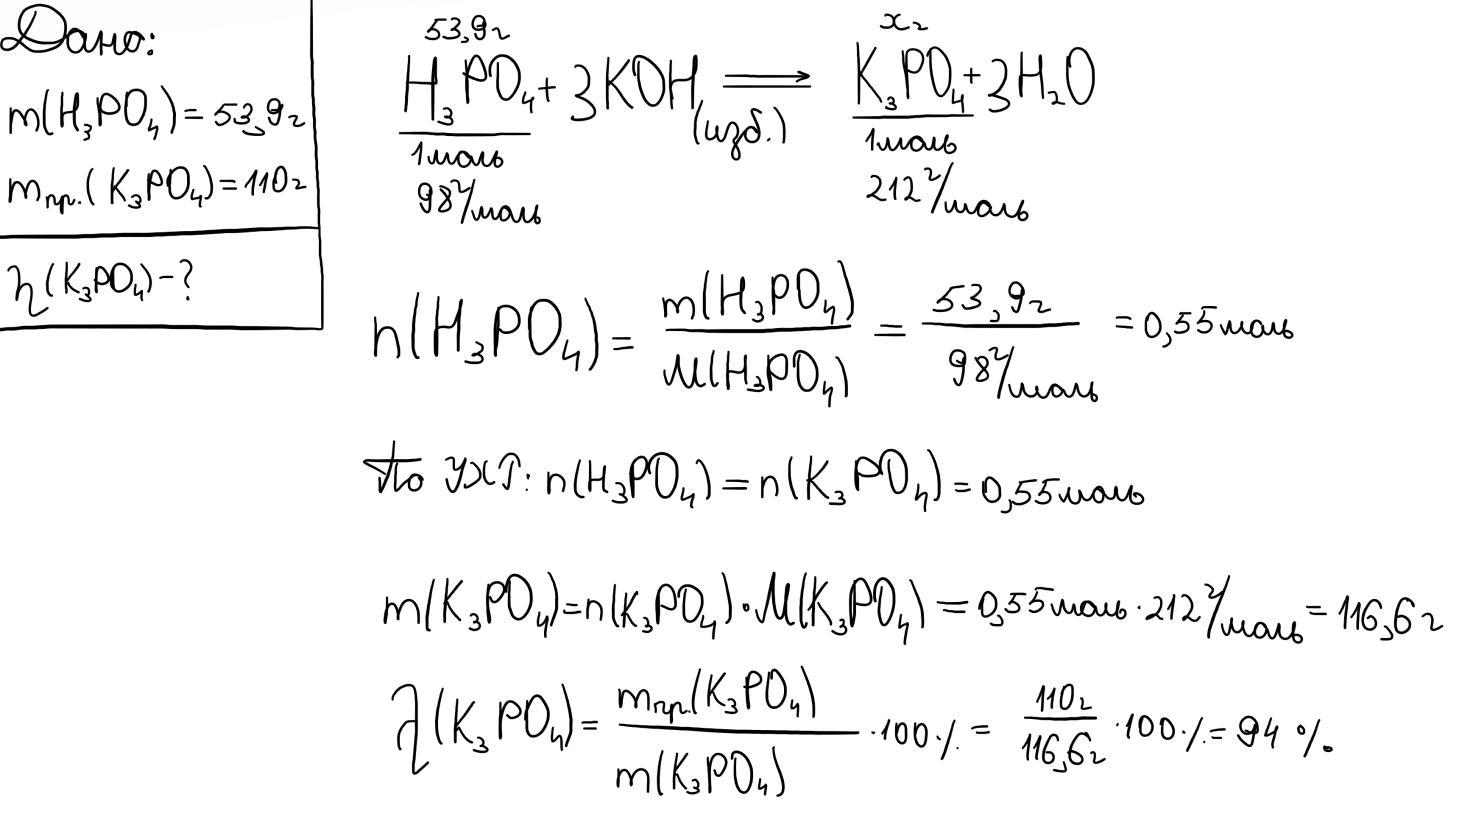 Дано:
m(H₃PO₄) = 53,9г
mпр.(K₃PO₄) = 110г
η(K₃PO₄) - ?
53,9г xг
H₃PO₄ + 3KOH (изб.) ⟹ K₃PO₄ + 3H₂O
1моль 1моль
98 г/моль 212 г/моль
n(H₃PO₄) = m(H₃PO₄) / M(H₃PO₄) = 53,9г / 98 г/моль = 0,55моль
По УХР: n(H₃PO₄) = n(K₃PO₄) = 0,55моль
m(K₃PO₄) = n(K₃PO₄) · M(K₃PO₄) = 0,55моль · 212 г/моль = 116,6г
η(K₃PO₄) = mпр.(K₃PO₄) / m(K₃PO₄) · 100% = 110г / 116,6г · 100% = 94 %.